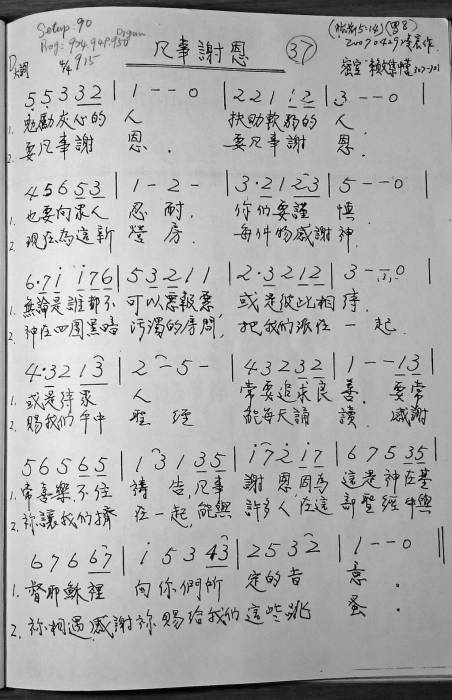 Setup:90
Organ
凡事謝恩
37
D大調 4/4
5 5 3 3 2 | 1 - - 0 | 2 2 1 1 2 | 3 - - 0 |
1. 勉勵灰心的 人 扶助軟弱的 人
2. 要凡事謝 恩. 要凡事謝 恩.
4 5 6 5 3 | 1 - 2 - | 3 · 2 1 2 3 | 5 - - 0 |
1. 也要向眾人 忍耐. 你們要謹 慎
2. 現在為這新 營房. 每件物感謝神
6 · 7 i i 7 6 | 5 3 2 1 1 | 2 · 3 2 1 2 | 3 - - 0
1. 無論是誰都不 可以惡報惡 或是彼此相待.
2. 神在四圍黑暗 污濁的房間, 把我們派在 一 起.
4 · 3 2 1 3 | 2 - 5 - | 4 3 2 3 2 | 1 - - 1 3 |
1. 或是待眾 人 常要追求良 善. 要常
2. 賜我們手中 聖 經 能每天誦 讀. 感謝
5 6 5 6 5 | 1 3 1 3 5 | i 7 2 i 7 | 6 7 5 3 5 |
1. 常喜樂,不住 禱 告,凡事 謝 恩因為 這是神在基
2. 祢讓我們擠 在一起,能與 許多人在這 部聖經中與
6 7 6 6 7 | i 5 3 4 3 | 2 5 3 2 | 1 - - 0 ||
1. 督耶穌裡 向你們所 定的旨 意.
2. 祢相遇,感謝祢賜給我們這些跳 蚤.